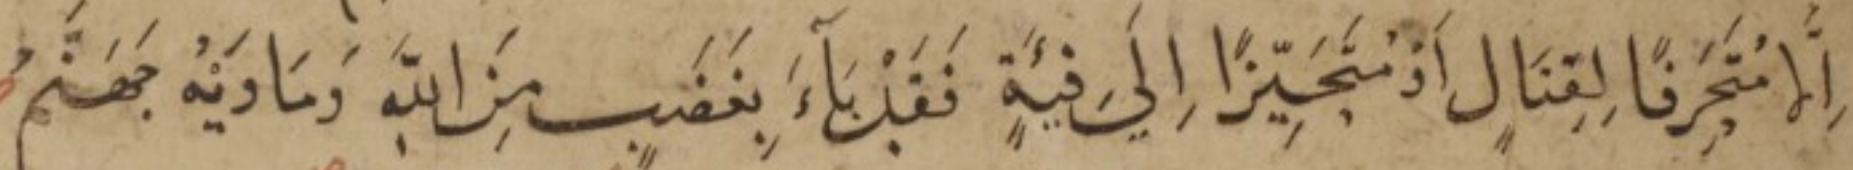 اِلَّا مُتَحَرِّفًا لِقِتَالٍ اَوْ مُتَحَيِّزًا اِلَى فِئَةٍ فَقَدْ بَآءَ بِغَضَبٍ مِنَ اللّٰهِ وَمَاْوٰيهُ جَهَنَّمُ